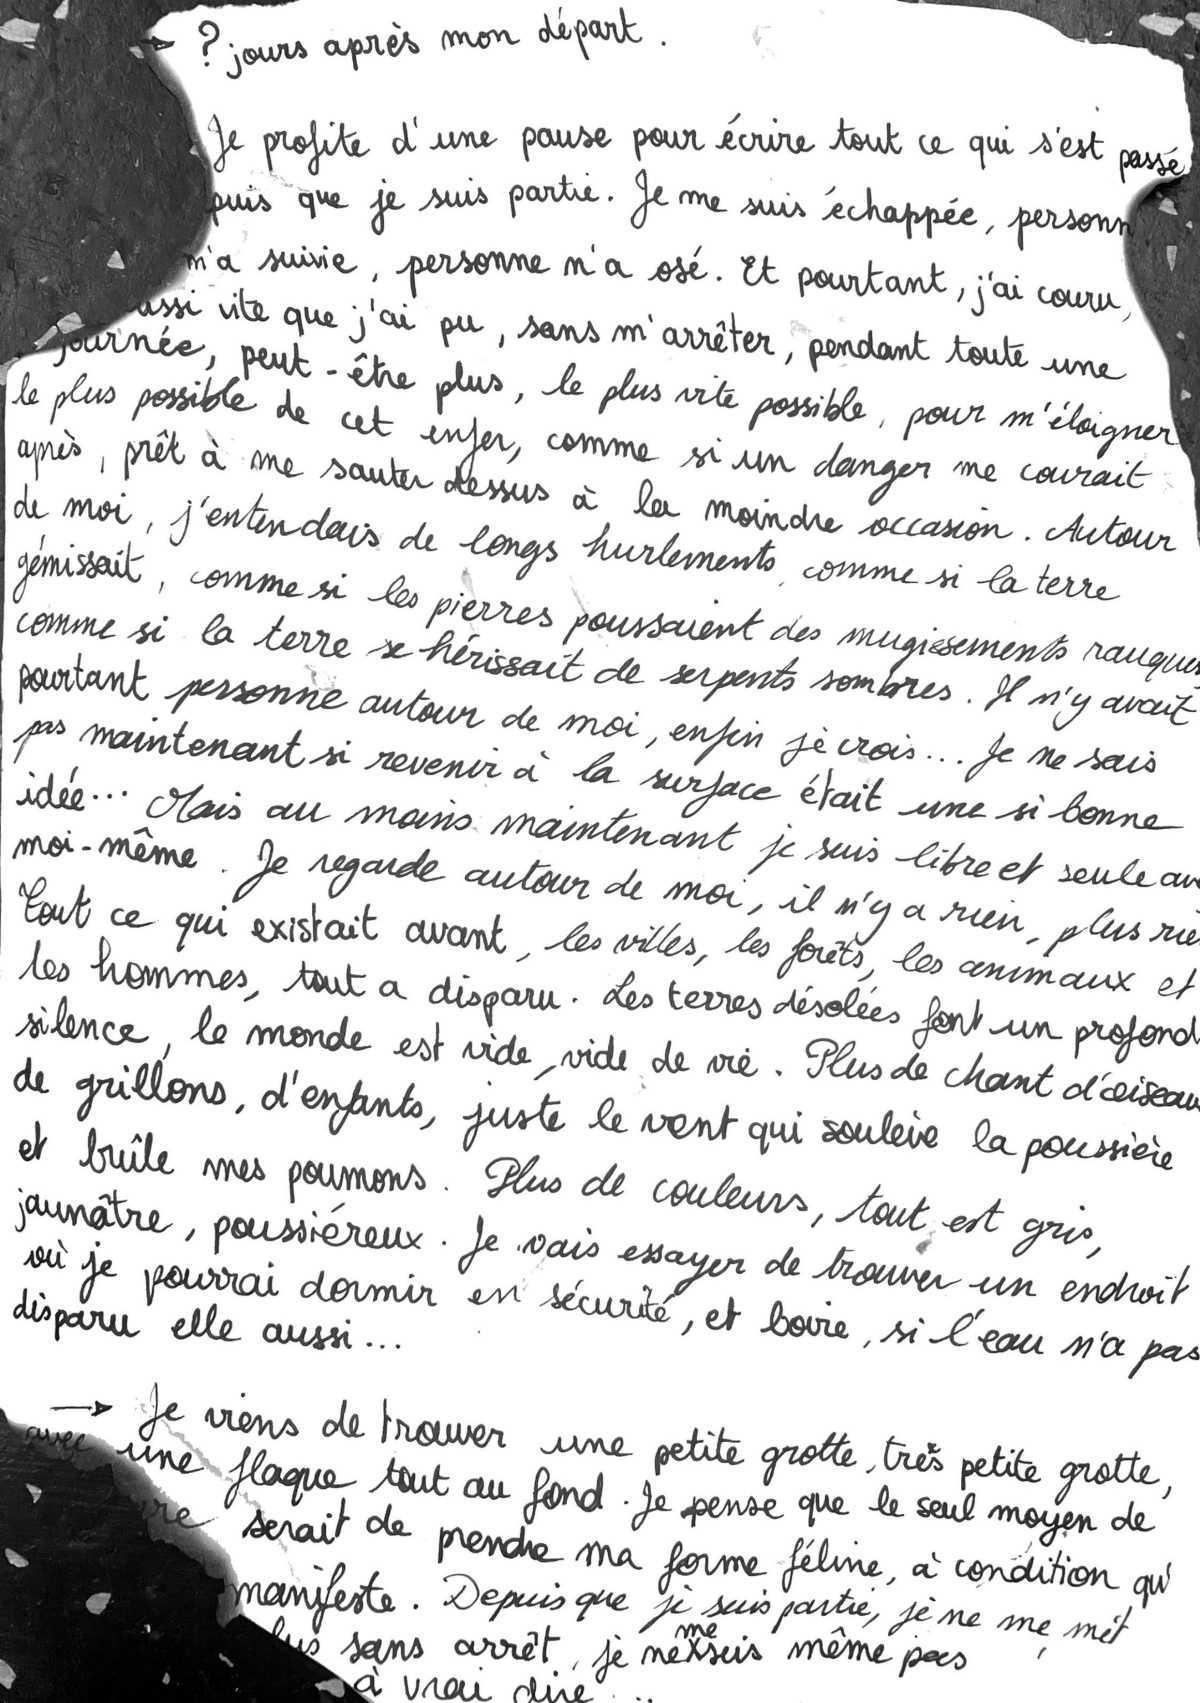 → ? jours après mon départ.
Je profite d'une pause pour écrire tout ce qui s'est passé
puis que je suis partie. Je me suis échappée, personn
m'a suivie, personne n'a osé. Et pourtant, j'ai couru,
ussi vite que j'ai pu, sans m'arrêter, pendant toute une
journée, peut-être plus, le plus vite possible, pour m'éloigner
le plus possible de cet enfer, comme si un danger me courait
après, prêt à me sauter dessus à la moindre occasion. Autour
de moi, j'entendais de longs hurlements, comme si la terre
gémissait, comme si les pierres poussaient des mugissements rauques
comme si la terre se hérissait de serpents sombres. Il n'y avait
pourtant personne autour de moi, enfin je crois... Je ne sais
pas maintenant si revenir à la surface était une si bonne
idée... Mais au moins maintenant je suis libre et seule av
moi-même. Je regarde autour de moi, il n'y a rien, plus rie
Tout ce qui existait avant, les villes, les forêts, les animaux et
les hommes, tout a disparu. Les terres désolées font un profond
silence, le monde est vide, vide de vie. Plus de chant d'oiseau
de grillons, d'enfants, juste le vent qui soulève la poussière
et brûle mes poumons. Plus de couleurs, tout est gris,
jaunâtre, poussiéreux. Je vais essayer de trouver un endroit
où je pourrai dormir en sécurité, et boire, si l'eau n'a pas
disparu elle aussi...
→ Je viens de trouver une petite grotte, très petite grotte,
avec une flaque tout au fond. Je pense que le seul moyen de
re serait de prendre ma forme féline, à condition qu'
manifeste. Depuis que je suis partie, je ne me mét
lus sans arrêt, je ne me suis même pas
à vrai dire...